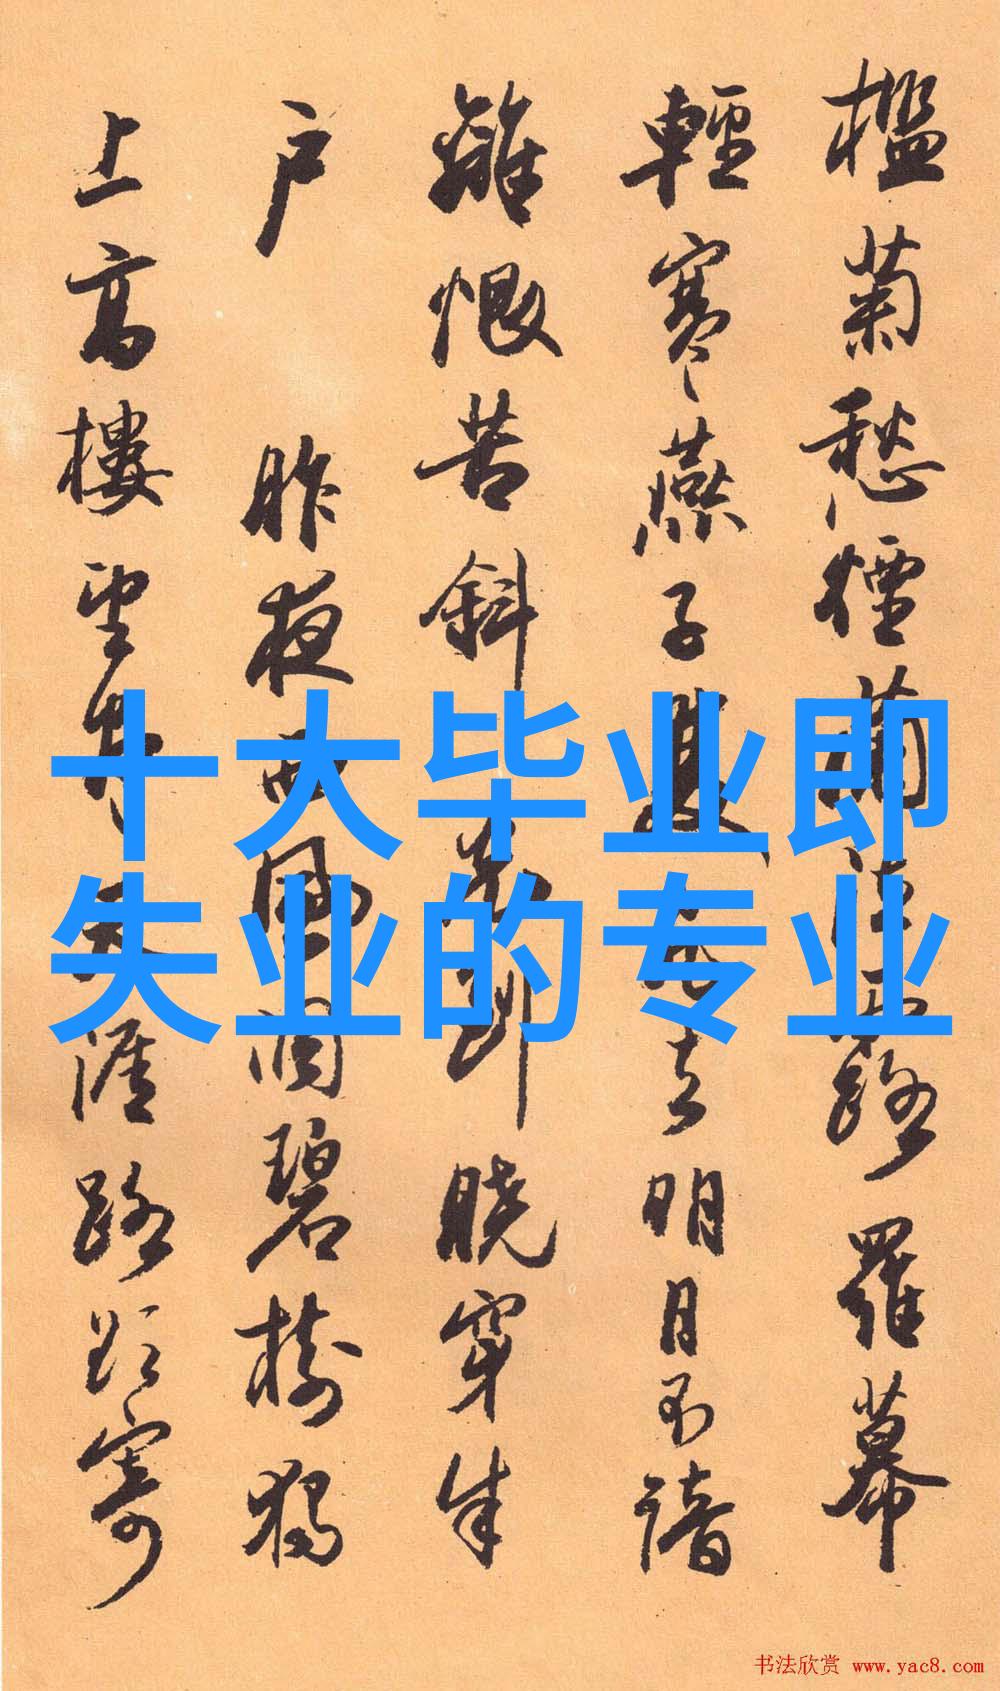 十大毕业即
失业的专业
檻菊愁煙蘭泣露羅幕
輕寒燕子雙飛去明月不諳
離恨苦斜光到曉穿朱
户 昨夜西風凋碧樹獨
上高樓望盡天涯路欲寄
书法欣赏 www.yac8.com